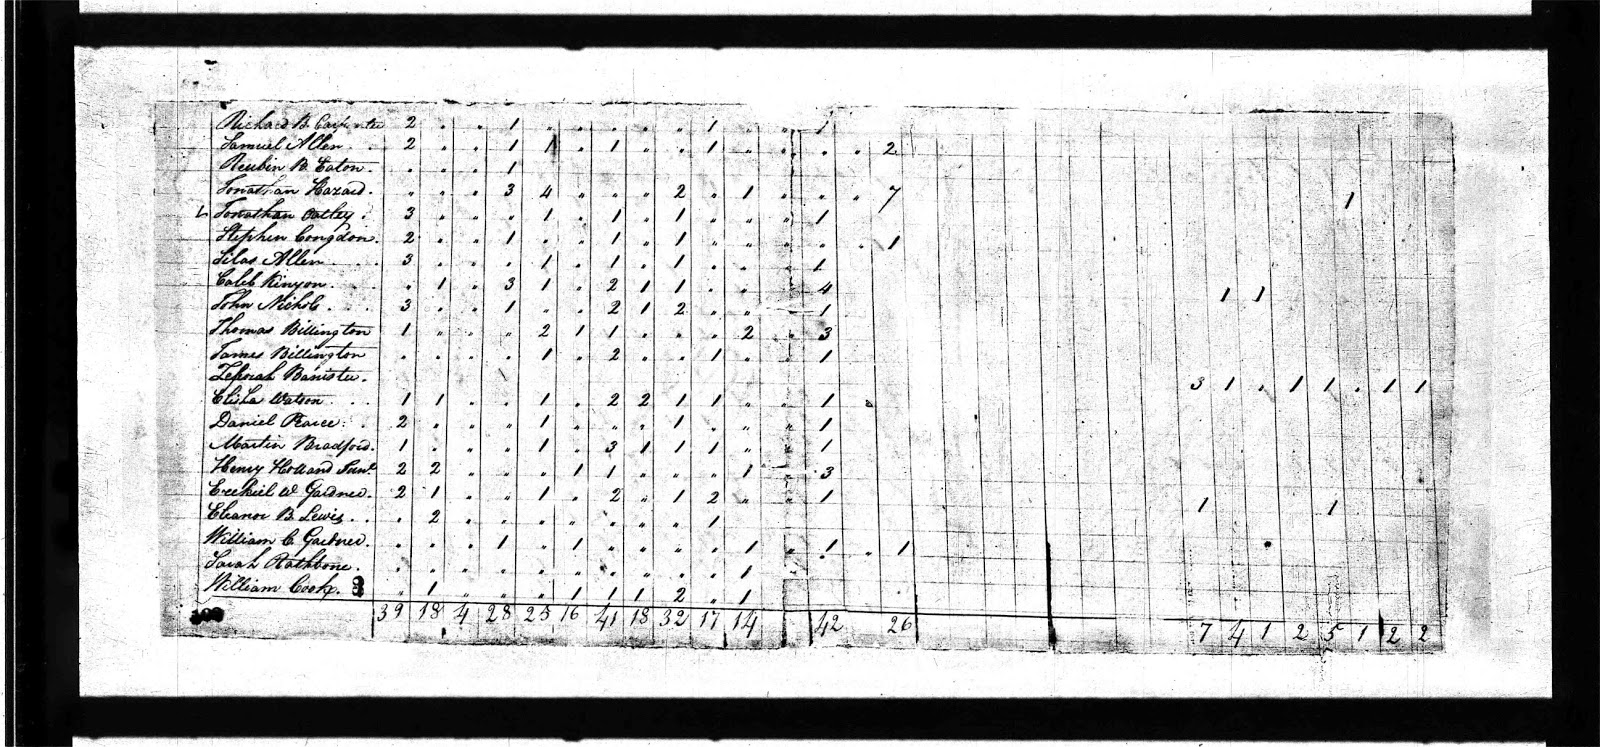 Richard B. Carpenter 2 . . 1 " . . . . " 1 " . " 1
Samuel Allen . . 2 . . 1 1 . 1 . . 1 " . . . . 2
Reubin B. Eaton . . . . 1
Jonathan Hazard . " " " 3 4 " " " 2 . 1 " " . . 7 1
Jonathan Oatley . 3 " " " 1 . 1 " 1 . . . " 1
Stephen Congdon . 2 " " 1 . . 1 " 1 . . . . . . 1
Silas Allen 3 . . . 1 . 1 . 1 . . . . 1
Caleb Kinyon . . . 1 . 3 1 . 2 1 1 . . . 4 1 1
John Nichols . . . 3 . . 1 . . 2 1 2 . . 1
Thomas Billington 1 " " " 2 1 1 . . . 2 " 3
James Billington . . . . 1 . 2 . . 1 . . 1
Banister . 3 1 . 1 1 . 1 1
Elisha Watson . . 1 1 . . 1 . 2 2 1 1 . . 1 .
Daniel Pearce . . 2 . . . 1 . . . 1 . . . 1
Martin Bradford . 1 . . . 1 . 3 1 1 1 . . 1
Henry Holland Junr 2 2 . . . 1 1 . . . 1 . 3
Ezekiel W. Gardner . 2 1 . . 1 . 2 . 1 2 . . 1 1 1
Eleanor B. Lewis . . . 2 . . . . . . . 1
William C. Gardner . . . . 1 . 1 . . . . 1 . 1 . 1
Sarah Rathbone . . . . . . . . . . . 1
William Cook . " 1 . . . 1 1 1 2 . 1
39 18 4 28 25 16 41 18 32 17 14 42 26 7 4 1 2 5 1 2 2